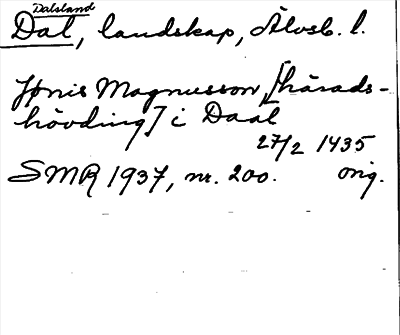 Dalsland
Dal, landskap, Älvsb. l.
Jönis Magnusson, [härads-
hövding] i Daal
27/2 1435
SMR 1937, nr. 200. orig.